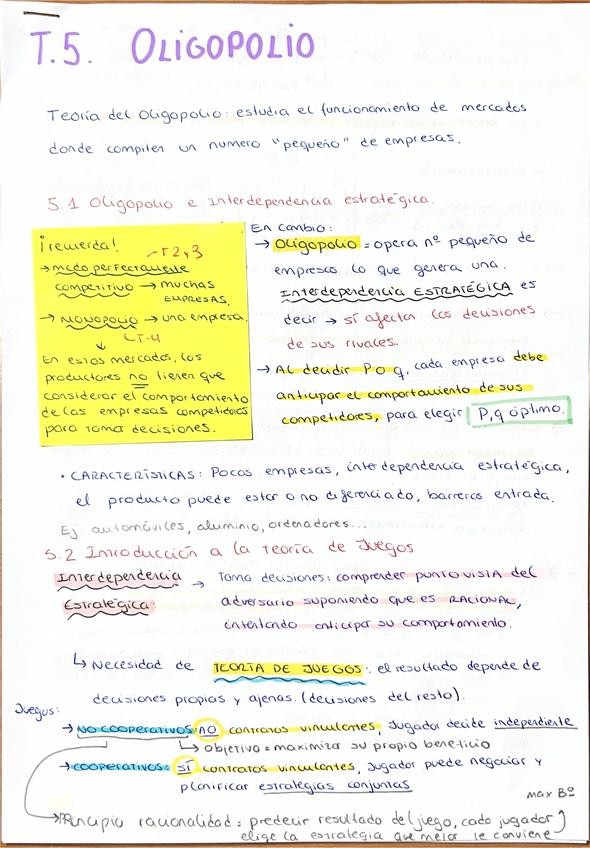 T.5. OLIGOPOLIO
Teoría del Oligopolio: estudia el funcionamiento de mercados
donde compiten un numero "pequeño" de empresas.
5.1 Oligopolio e Interdependencia estratégica.
¡recuerda!
T2 y 3
→ mcdo perfectamente
competitivo → muchas
EMPRESAS.
→ MONOPOLIO → una empresa.
↓ T-4
En estos mercados, los
productores no tienen que
considerar el comportamiento
de las empresas competidoras
para tomar decisiones.
En cambio:
→ Oligopolio = opera nº pequeño de
empresas lo que genera una
Interdependencia ESTRATÉGICA es
decir → sí afectan las decisiones
de sus rivales.
→ Al decidir P o q, cada empresa debe
anticipar el comportamiento de sus
competidores, para elegir P,q óptimo.
• CARACTERÍSTICAS: Pocas empresas, interdependencia estratégica,
el producto puede estar o no diferenciado, barreras entrada.
Ej: automóviles, aluminio, ordenadores...
5.2 Introducción a la teoría de Juegos
Interdependencia → Toma decisiones: comprender PUNTO VISTA del
Estratégica: adversario suponiendo que es RACIONAL,
intentando anticipar su comportamiento.
↳ Necesidad de TEORÍA DE JUEGOS: el resultado depende de
decisiones propias y ajenas. (decisiones del resto).
Juegos:
→ NO COOPERATIVOS NO contratos vinculantes, Jugador decide independiente
↳ objetivo = maximizar su propio beneficio
→ COOPERATIVOS: SÍ contratos vinculantes, Jugador puede negociar y
planificar estrategias conjuntas
max Bº
→ Principio racionalidad = predecir resultado del juego, cada jugador
elige la estrategia que mejor le conviene